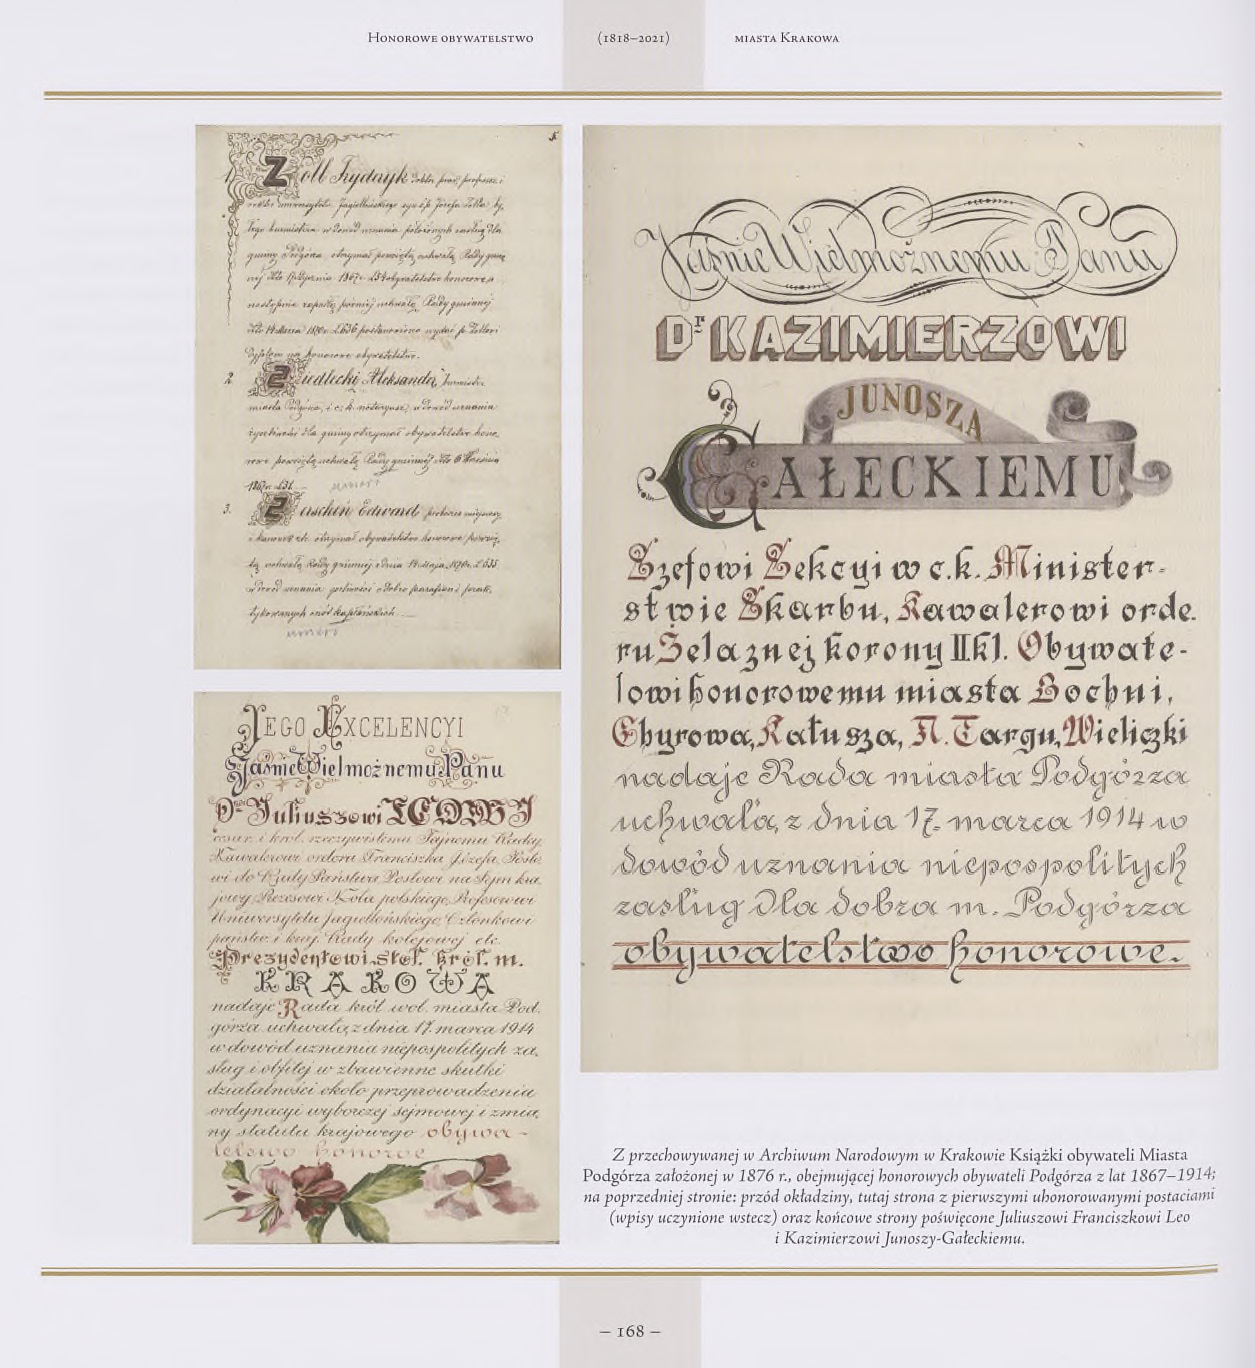 Honorowe obywatelstwo (1818–2021) miasta Krakowa
5
1) Zoll Frydryk doktor praw, profesor i
rektor uniwersytetu Jagiellońskiego syn ś.p. Józefa Zolla by,
łego burmistrza w dowód uznania położonych zasług dla
gminy Podgórza, otrzymał powziętą uchwałą Rady gmin
nej dto
następnie zapadłą później uchwałą Rady gminnej
dto 14 Marca 1870 r. L 636 postanowiono wydać p. Zollowi
dyplom na honorowe obywatelstwo.
2. Siedlecki Aleksander, burmistrz
miasta Podgórza, i c. k. notaryusz, w dowód uznania
życzliwości dla gminy otrzymał obywatelstwo hono,
rowe powziętą uchwałą Rady gminnej dto 6 Września
186
umarł
3. Serschin Edward proboszcz miejscowy
i kanonik etc. otrzymał obywatelstwo honorowe powzię,
tą uchwałą Rady gminnej z dnia 14 Maja 1870 r. L 635
w dowód uznania gorliwości o dobro parafian i prak,
tykowanych cnót kapłańskich.
umarł
Jego Excelencyi
Jaśnie Wielmożnemu Panu
Drowi Juliuszowi LEOWI
cesar. i król. rzeczywistemu Tajnemu Radcy,
Kawalerowi orderu Franciszka Józefa, Posło
wi do Rady Państwa Posłowi na Sejm kra,
jowy Prezesowi Koła polskiego, Profesorowi
Uniwersytetu Jagiellońskiego, Członkowi
państw. i kraj. Rady kolejowej etc.
Prezydentowi stoł. król. m.
KRAKOWA
nadaje Rada król. wol. miasta Pod,
górza uchwałą, z dnia 17. marca 1914
w dowód uznania niepospolitych za,
sług i obfitej w zbawienne skutki
działalności około przeprowadzenia
ordynacyi wyborczej sejmowej i zmia,
ny statutu krajowego obywa-
telstwo honorowe
Jaśnie Wielmożnemu Panu
Dr KAZIMIERZOWI
JUNOSZA
GAŁECKIEMU
Szefowi Sekcyi w c.k. Minister-
stwie Skarbu, Kawalerowi orde.
ru Żelaznej korony II kl. Obywate-
lowi honorowemu miasta Bochni,
Chyrowa, Kałusza, N. Targu, Wieliczki
nadaje Rada miasta Podgórza
uchwałą, z dnia 17. marca 1914 w
dowód uznania niepospolitych
zasług dla dobra m. Podgórza
obywatelstwo honorowe.
Z przechowywanej w Archiwum Narodowym w Krakowie Książki obywateli Miasta
Podgórza założonej w 1876 r., obejmującej honorowych obywateli Podgórza z lat 1867–1914;
na poprzedniej stronie: przód okładziny, tutaj strona z pierwszymi uhonorowanymi postaciami
(wpisy uczynione wstecz) oraz końcowe strony poświęcone Juliuszowi Franciszkowi Leo
i Kazimierzowi Junoszy-Gałeckiemu.
– 168 –